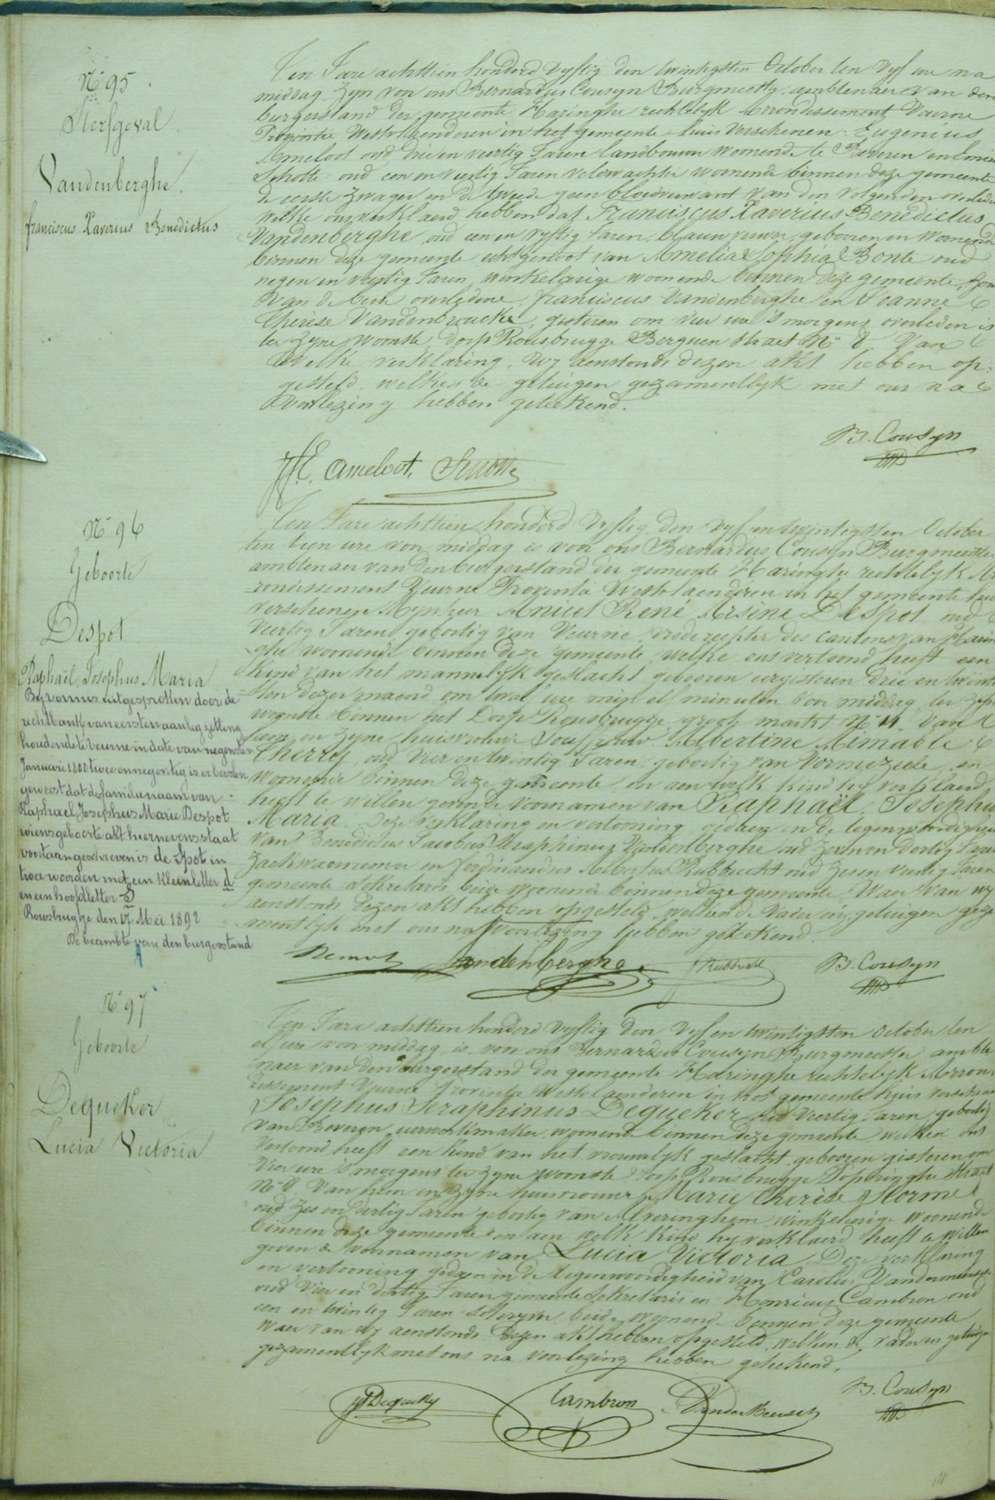 N° 95
Sterfgeval
Vandenberghe
franciscus Xaverius Benedictus
Ten Jare achttien honderd vyftig den twintigsten October ten vyf ure na
middag, zyn von ons Bernardus Cousyn Burgmeester, amblenaer van den
burgerstand der gemeente Haringhe rechtelyk Arrondissement Veurne
Provintie Westvlaenderen in het gemeente huis verschenen Eugenius
Ameloot oud drie en veertig Jaren landbouwer woonende te Beveren en
Schotte oud een en veertig Jaren veldwachter woonende binnen deze gemeente
de eerste zwager en de tweede geen bloedverwant van den volgenden overledene
welke ons verklaerd hebben dat Franciscus Xaverius Benedictus
Vandenberghe oud een en vyftig Jaren, blauwverwer, gebooren en woonende
binnen deze gemeente echtgenoot van Amelia Sophia Bonte oud
negen en veertig Jaren, winkelierige woonende binnen deze gemeente, zoon
van de beide overledene, franciscus Vandenberghe en Joanne
Therese Vandenbroucke, gisteren om vier ure 's morgens overleden is
ter zyne woonste, dorp Rousbrugge Berguen straet N° 8 Van
Welke verklaring wy aenstonds dezen akt hebben op-
gesteld, welkers de getuigen gezamentlyk met ons na
Voorlezing hebben geteekend.
B. Cousyn
E. Ameloot. Schotte
N° 96
Geboorte
Despot
Raphaël Josephus Maria
By vonnis uitgesproken door de
rechtbank van eersten aanleg zitting
houdende te Veurne in date van negen
Januari 1800 twee en negentig is er bevolen
geweest dat de familienaam van
Raphael Josephus Marie Despot
wiens geboorte akt hiernevens staat
voortaan geschreven is de Spot in
twee woorden met een kleinletter d
en een hoofdletter S
Rousbrugge den 17 Mei 1892
De beambte van den burgerstand
Ten Jare achttien honderd vyftig den vyf en twintigsten October
ten tien ure voor middag is voor ons Bernardus Cousyn Burgmeester
amblenaer van den burgerstand der gemeente Haringhe rechtelyk Ar-
rondissement Veurne Provintie Westvlaenderen in het gemeente huis
verschenen Mynheer Amuel René Arsine Despot oud
veertig Jaren, geboortig van Veurne, vrederechter des cantons van Harin-
ghe woonende binnen deze gemeente, welke ons vertoond heeft een
kind van het mannelyk geslacht, gebooren eergisteren drie en twintig-
sten dezer maend om twee ure min minuten voor middag, ter zyne
woonste binnen het dorp Rousbrugge groot markt N° 11, van
hem en zyne huisvrouw Jouffrouw Albertine Aimable
Cherey oud vier en twintig Jaren, geboortig van Vormezeele, en
woonende binnen deze gemeente en aen welk kind hy verklaerd
heeft te willen geven de voornamen van Raphaël Josephus
Maria. Deze verklaring en vertooning gedaen in de tegenwoordigheid
van Benedictus Jacobus Seraphinus Vandenberghe oud Jaren
zaekwaernemer en Ferdinandus Albertus Rubbrecht oud zeven veertig Jaren
gemeente sekretaris beide woonende binnen deze gemeente. Waer van wy
aenstonds dezen akt hebben opgesteld, welken de Vader en getuigen geza-
mentlyk met ons na Voorlezing hebben geteekend
Despot Vandenberghe Rubbrecht B. Cousyn
N° 97
Geboorte
Dequeker
Lucia Victoria
Ten Jare achttien honderd vyftig den vyf en twintigsten October ten
elf ure voor middag, is voor ons Bernardus Cousyn Burgmeester, amble-
naer van den burgerstand der gemeente Haringhe rechtelyk Arron-
dissement Veurne Provintie Westvlaenderen in het gemeente huis verschenen
Josephus Seraphinus Dequeker oud veertig Jaren geboortig
van Beveren, uerwerkmaker, woonende binnen deze gemeente welken ons
vertoond heeft een kind van het vrouwelyk geslacht, gebooren gisteren om
vier ure 's morgens ter zyne woonste dorp Rousbrugge Poperinghe Straet
N° 8 Van hem en zyne huisvrouwe Marie Therèse Storme
oud zes en dertig Jaren geboortig van Alveringhem winkelierige woonende
binnen deze gemeente en aen welk kind hy verklaerd heeft te willen
geven de voornamen van Lucia Victoria. Deze verklaring
en vertooning gedaen in de tegenwoordigheid van Carolus Vandermeersch
oud vier en dertig Jaren gemeente sekretaris en Henricus Cambron oud
een en twintig Jaren schryver, beide woonende binnen deze gemeente
Waer van wy aenstonds dezen akt hebben opgesteld, welken de vader en getuigen
gezamentlyk met ons na voorlezing hebben geteekend.
J Dequeker Cambron Vandermeersch B. Cousyn